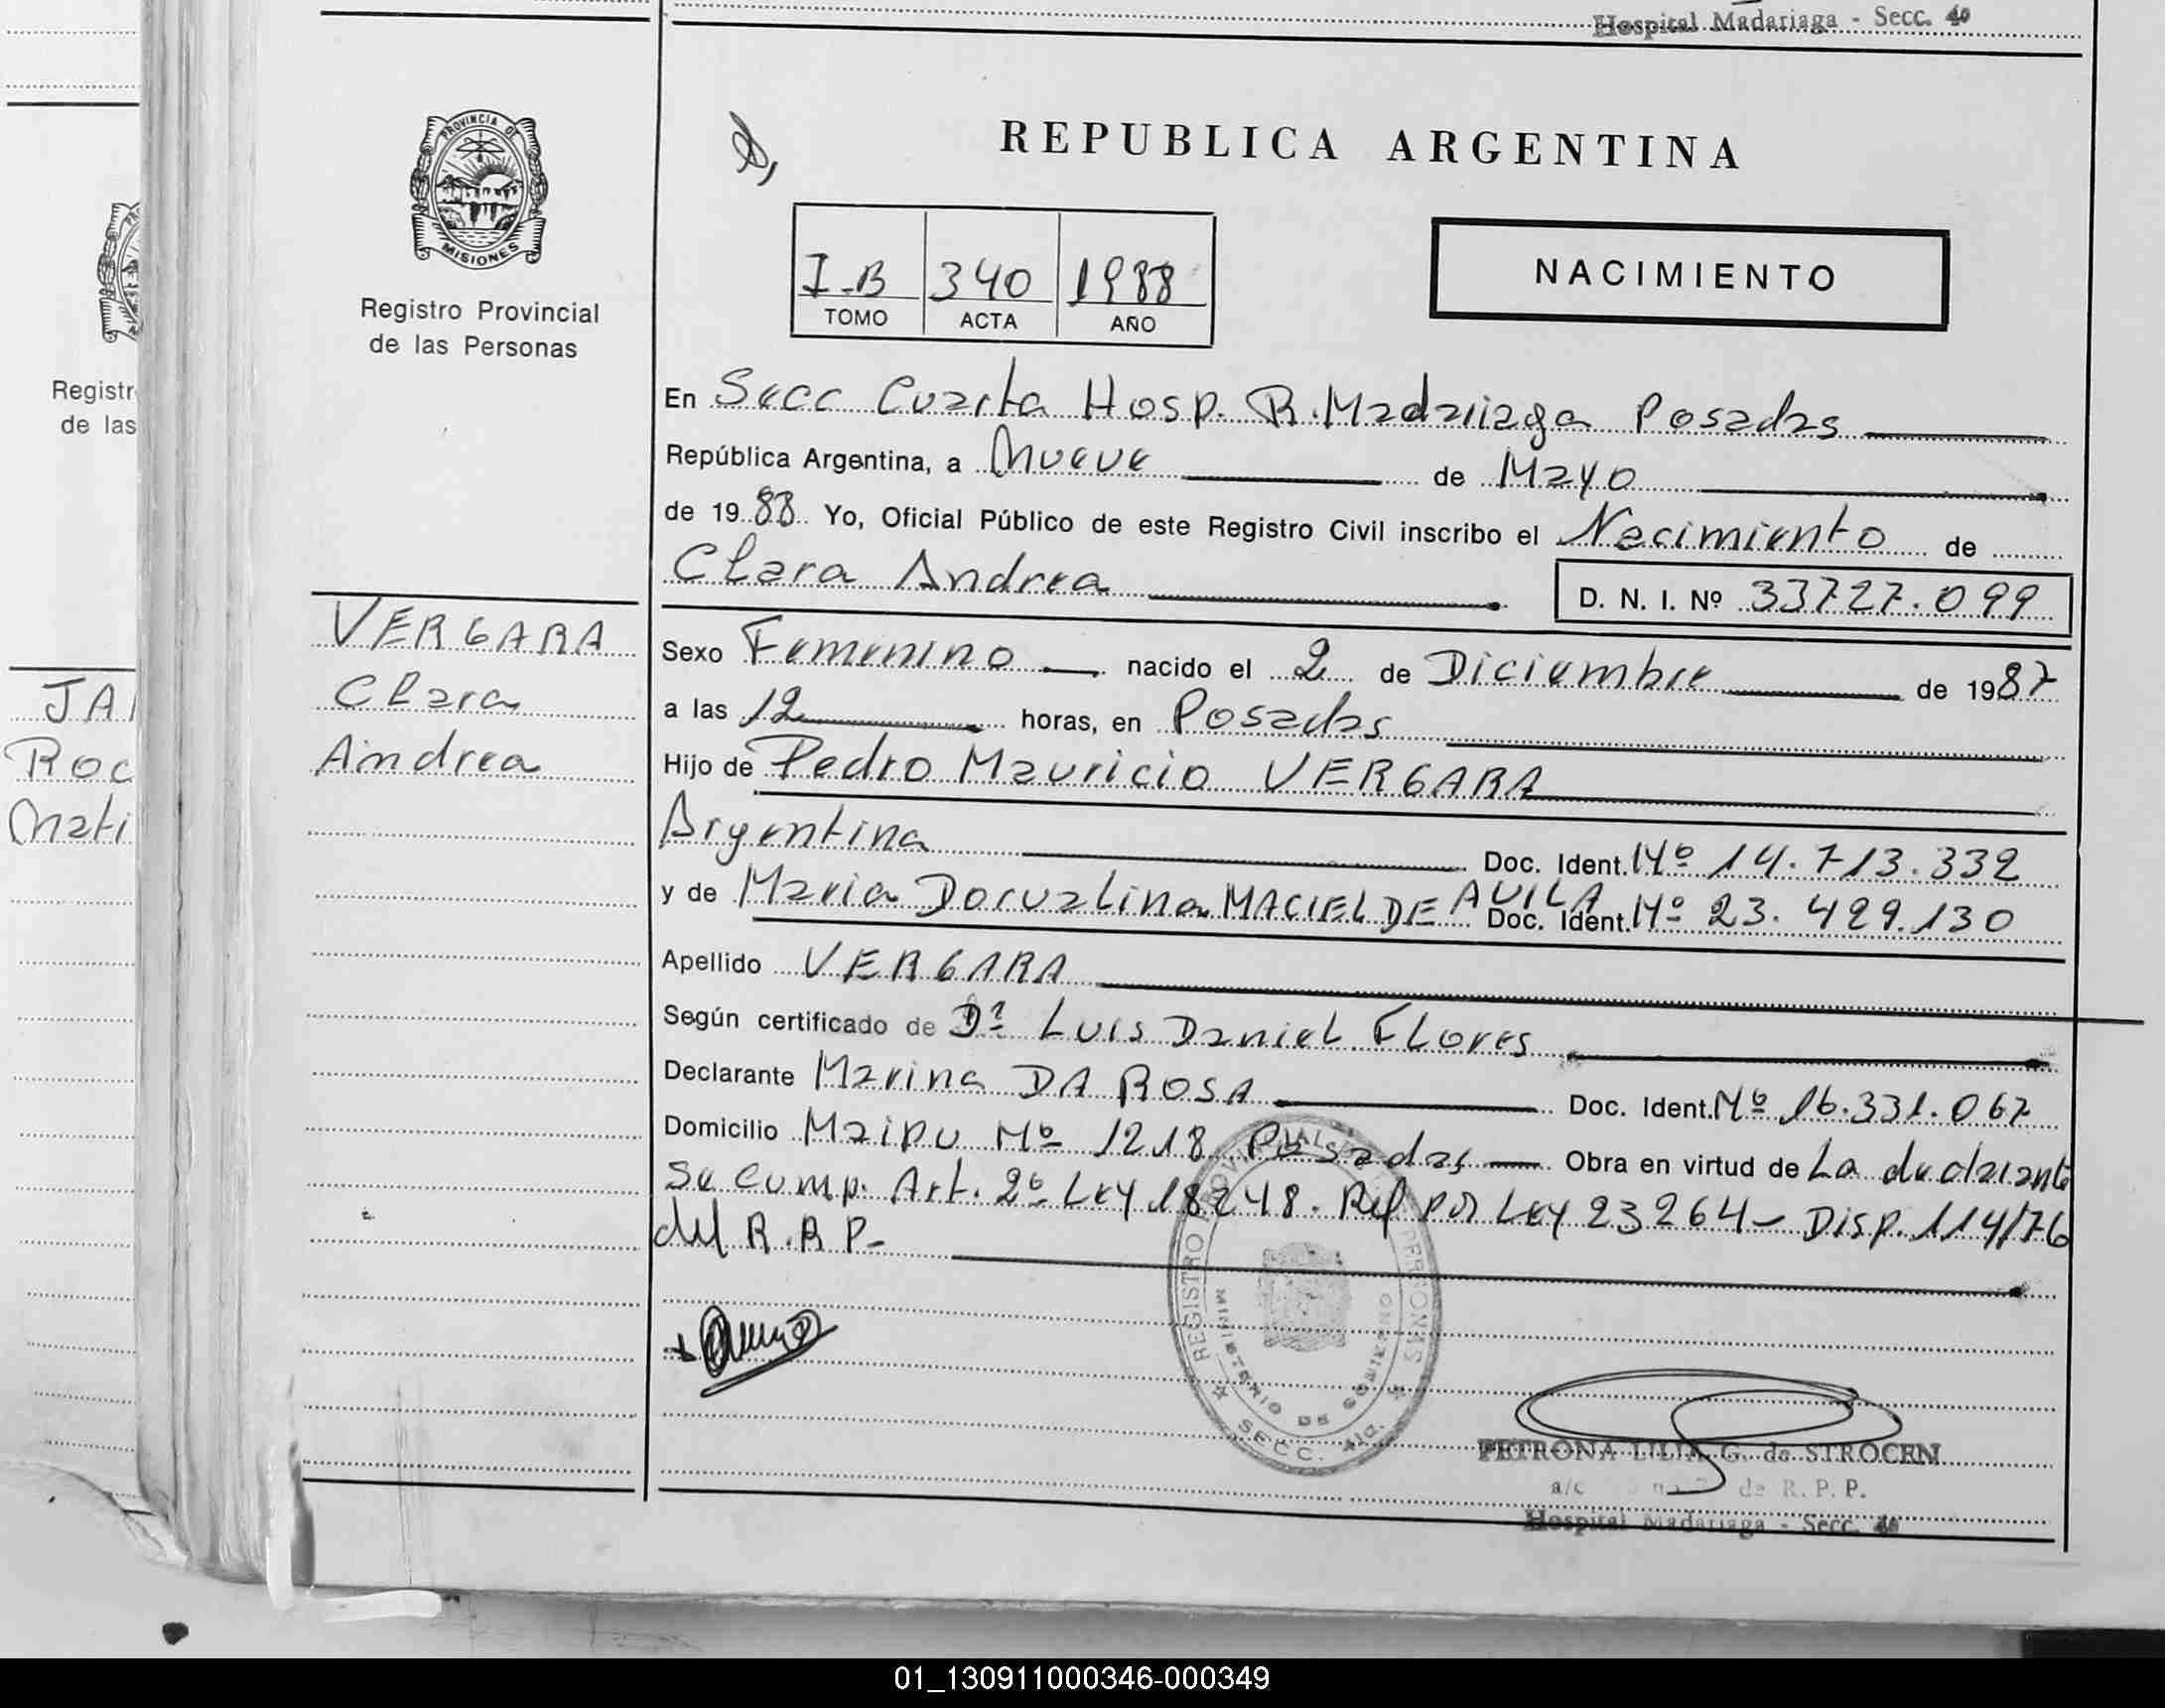 Hospital Madariaga - Secc. 4a
PROVINCIA DE
MISIONES
Registro Provincial
de las Personas
REPUBLICA ARGENTINA
I-B 340 1988
TOMO ACTA AÑO
NACIMIENTO
Registr
de las
En Secc Cuarta Hosp. R. Madariaga Posadas
República Argentina, a Nueve de Mayo
de 1988 Yo, Oficial Público de este Registro Civil inscribo el Nacimiento de
Clara Andrea
D. N. I. Nº 33727.099
VERGARA
Clara
Andrea
JA
Roc
Mati
Sexo Femenino nacido el 2 de Diciembre de 1987
a las 12 horas, en Posadas
Hijo de Pedro Mauricio VERGARA
Argentina Doc. Ident. Nº 14.713.332
y de Maria Dorvalina MACIEL DE AVILA Doc. Ident. Nº 23.429.130
Apellido VERGARA
Según certificado de Dr Luis Daniel Flores
Declarante Marina DA ROSA Doc. Ident. Nº 16.331.067
Domicilio Maipu Nº 1218 Posadas Obra en virtud de La declarante
Se Comp. Art. 2º Ley 18248. Ref por Ley 23264- Disp. 114/76
del R.R P-
REGISTRO PROVINCIAL DE LAS PERSONAS
MINISTERIO DE GOBIERNO
SECC. 4ta.
PETRONA LILIA G. de STROCEN
a/c de R. P. P.
Hospital Madariaga - Secc. 4a
01_130911000346-000349